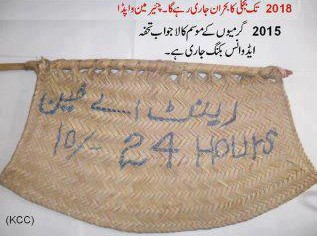 2018 تک بجلی کا بحران جاری رہے گا۔ چئیرمین واپڈا
2015 گرمیوں کے موسم کا لاجواب تحفہ
ایڈوانس بکنگ جاری ہے۔
رینٹ اے فین
10/- 24 Hours
(KCC)